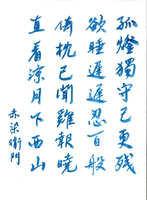 孤燈獨守已更残
欲睡遲遲忍百般
倚枕已聞雞報曉
直看涼月下西山
赤染衛門